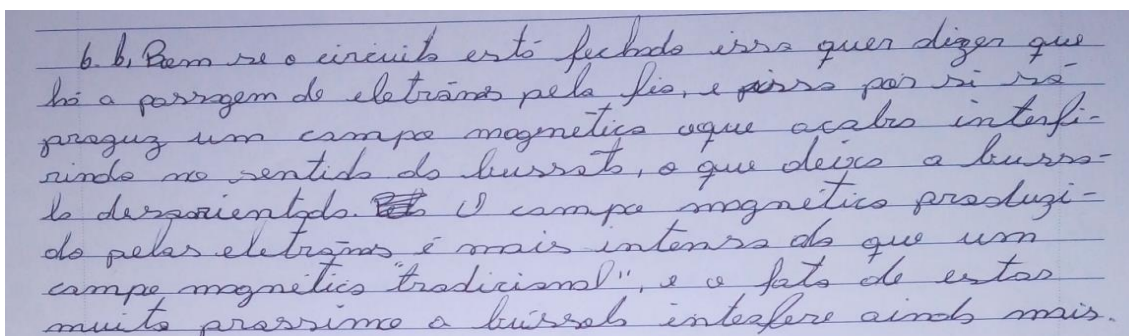 6. b, Bem se o circuito está fechado isso quer dizer que
há a passagem de eletrãns pela fio, e isso por si só
produz um campo magnético oque acaba interfi-
rindo no sentido da bussola, o que deixa a busso-
la desorientada. O campo magnético produzi-
do pelos eletrãns é mais intenso do que um
campo magnético "tradicional", e o fato de estar
muito prossimo a bússola interfere ainda mais.